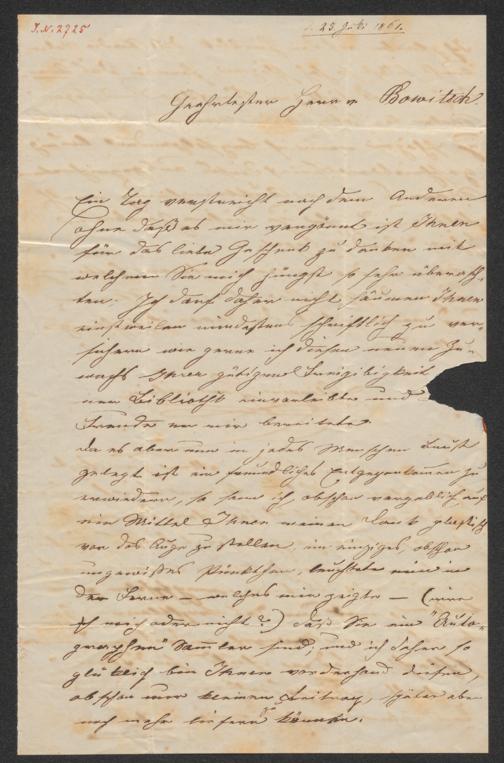 I.N. 2725
d. 25 Juli 1861.
Geehrtester Herr v Bowitsch.
Ein Tag verstreicht nach dem Anderen
ohne daß es mir vergönnt ist Ihnen
für das liebe Geschenk zu danken mit
welchem Sie mich jüngst so sehr überrasch-
ten. Ich darf daher nicht säumen Ihnen
einstweilen mindestens schriftlich zu ver-
sichern wie gerne ich diesen neuen Zu-
wachs Ihrer gütigen Freigibigkeit
ner Bibliothek einverleibte und
Freude er mir bereitete.
Da es aber nun in jedes Menschen Brust
gelegt ist ein freundliches Entgegenkommen zu
erwiedern, so sann ich obschon vergeblich auf
ein Mittel Ihnen meinen Dank plastisch
vor das Auge zu stellen, ein einziges, obschon
ungewisses Pünktchen, leuchtete mir in
der Ferne — welches mir zeigte — (irre
ich mich oder nicht?) daß Sie ein "Auto-
graphen" Sammler sind; und ich daher so
glücklich bin Ihnen vorderhand diesen,
obschon nur kleinen Beitrag, später aber
noch mehr liefern könnte.